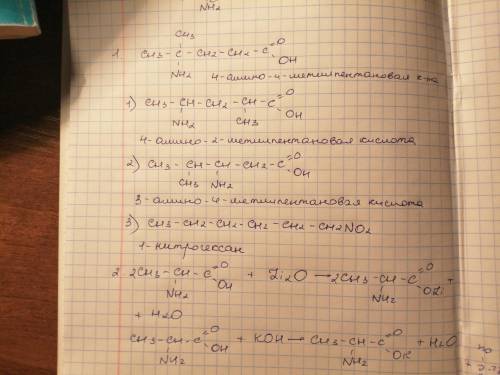 NH2
CH3
1. CH3 - C - CH2 - CH2 - C =O
OH
NH2
4-амино-4-метилпентановая к-та
1) CH3 - CH - CH2 - CH - C =O
OH
NH2 CH3
4-амино-2-метилпентановая кислота
2) CH3 - CH - CH - CH2 - C =O
OH
CH3 NH2
3-амино-4-метилпентановая кислота
3) CH3 - CH2 - CH2 - CH2 - CH2 - CH2NO2
1-нитрогексан
2. 2CH3 - CH - C =O + Li2O → 2CH3 - CH - C =O +
OH OLi
NH2 NH2
+ H2O
CH3 - CH - C =O + KOH → CH3 - CH - C =O + H2O
OH OK
NH2 NH2